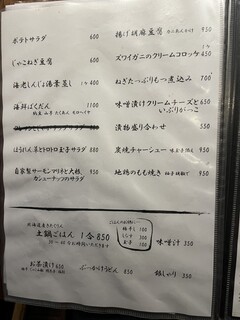 ポテトサラダ 600
じゃこねぎ豆腐 600
海老しんじょ湯葉蒸し 1ケ 400
海鮮ばくだん 1100
ほうれん草とトロトロ玉子サラダ 880
自家製サーモンマリネと大根、
カシューナッツのサラダ 950
揚げ胡麻豆腐 950
ズワイガニのクリームコロッケ 1ケ 450
ねぎたっぷりもつ煮込み 700
味噌漬けクリームチーズと
いぶりがっこ 650
漬物盛り合わせ 550
炭焼チャーシュー 850
地鶏のもも焼き 950
土鍋ごはん 1合 850
梅干し 100
しらす 100
玉子 100
味噌汁 350
お茶漬け 650
ぶっかけうどん 850
銀しゃり 350